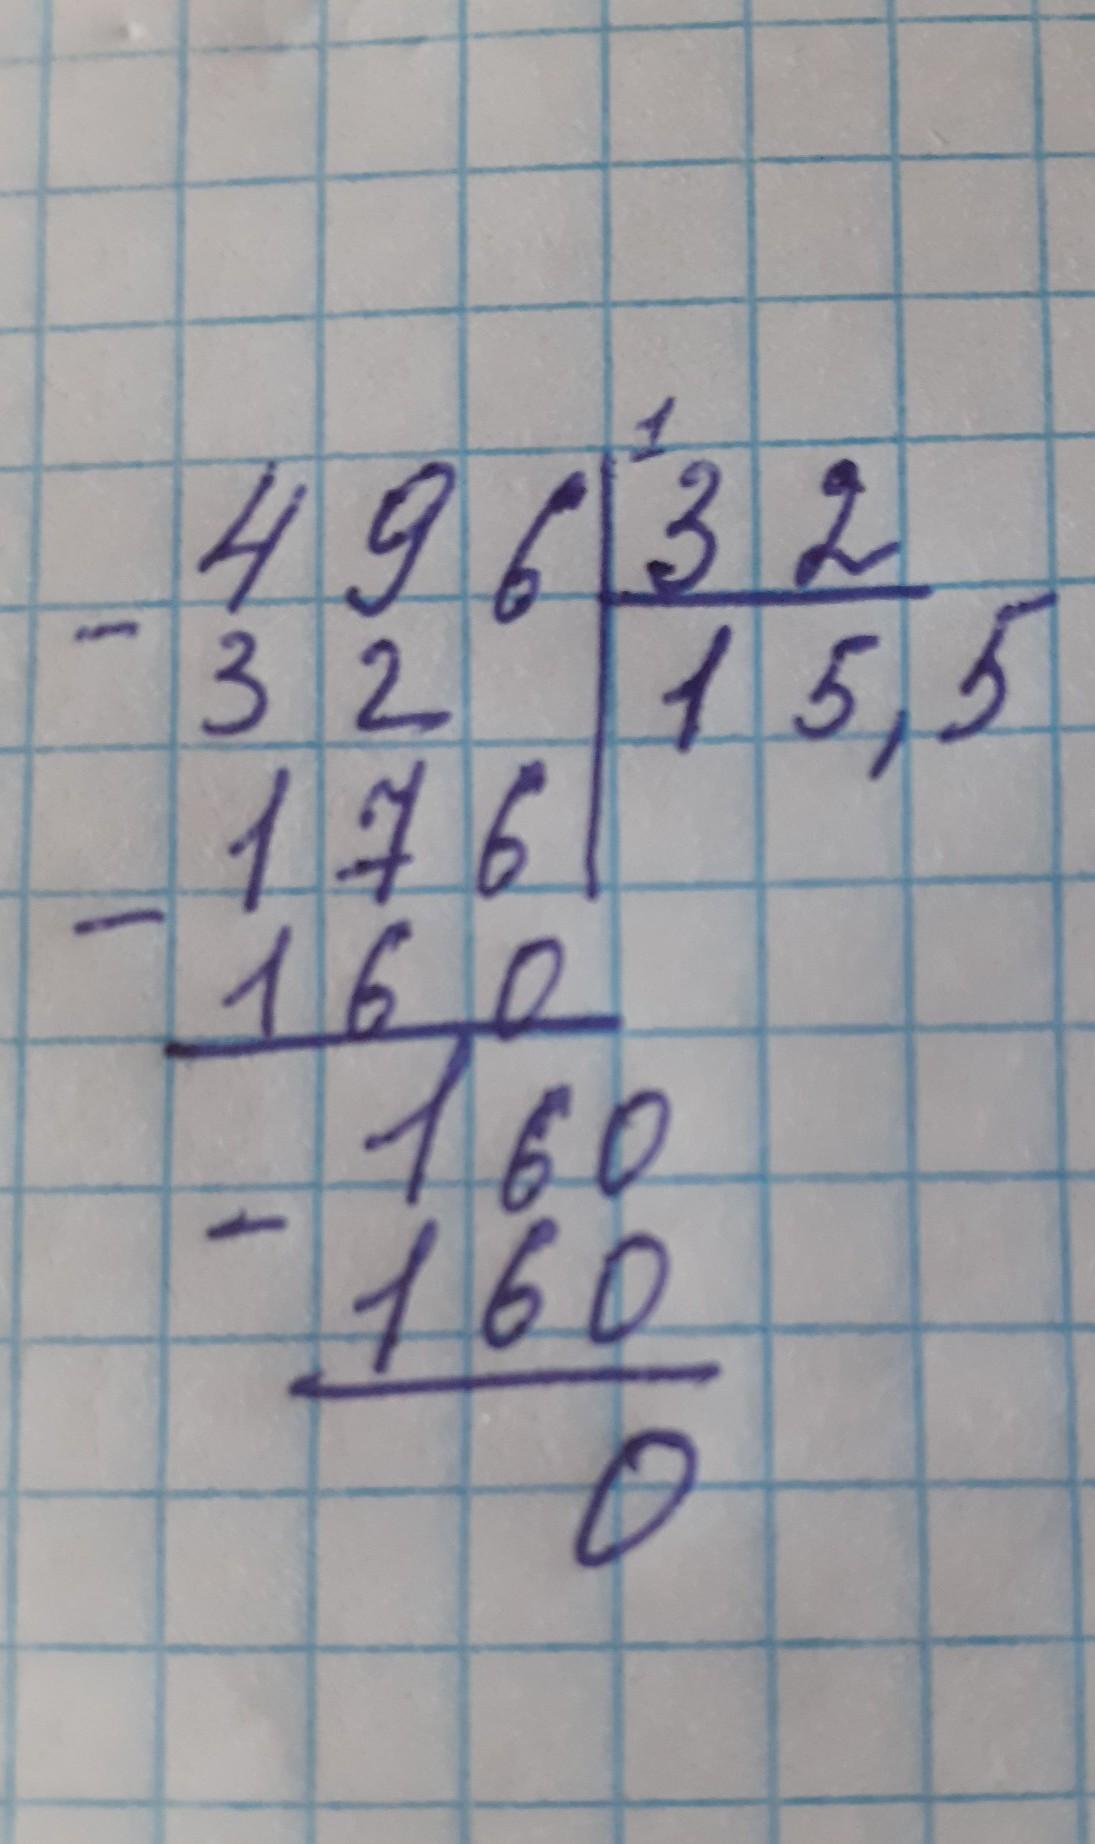 1
496 32
- 32 15,5
176
- 160
160
- 160
0